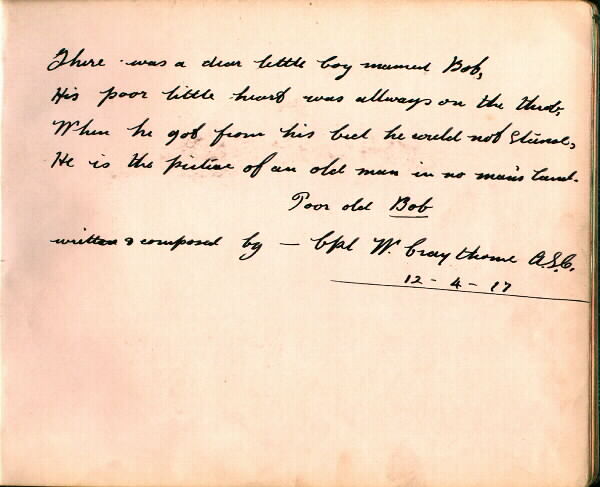 There was a dear little boy named Bob,
His poor little heart was allways on the throb,
When he got from his bed he could not stand,
He is the picture of an old man in no man's land.
Poor old Bob
written & composed by — Cpl W. Craythorne A.S.C.
12 - 4 - 17